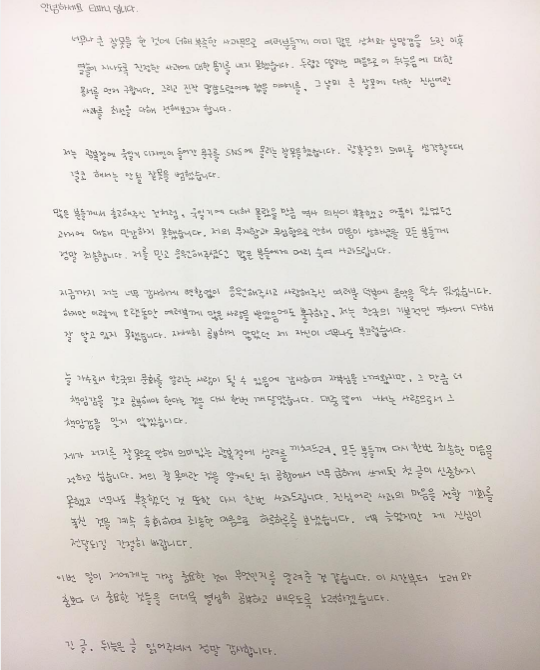 안녕하세요 티파니 입니다.
너무나 큰 잘못을 한 것에 더해 부족한 사과문으로 여러분들께 이미 많은 상처와 실망감을 드린 이후
열흘이 지나도록 진정한 사과에 대한 용기를 내지 못했습니다. 두렵고 떨리는 마음으로 이 뒤늦음에 대한
용서를 먼저 구합니다. 그리고 진작 말씀드렸어야 했을 이야기를, 그날의 큰 잘못에 대한 진심어린
사과를 최선을 다해 전해보고자 합니다.
저는 광복절에 욱일기 디자인이 들어간 문구를 SNS에 올리는 잘못을했습니다. 광복절의 의미를 생각할때
결코 해서는 안될 잘못을 범했습니다.
많은 분들께서 충고해주신 것처럼, 욱일기에 대해 몰랐을 만큼 역사 의식이 부족했고 아픔이 있었던
과거에 대해 민감하지 못했습니다. 저의 무지함과 무심함으로 인해 마음이 상하셨을 모든 분들께
정말 죄송합니다. 저를 믿고 응원해주셨던 많은 분들에게 머리 숙여 사과드립니다.
지금까지 저는 너무 감사하게 변함없이 응원해주시고 사랑해주신 여러분 덕분에 음악을 할수 있었습니다.
하지만 이렇게 오랫동안 여러분께 많은 사랑을 받았음에도 불구하고, 저는 한국의 기본적인 역사에 대해
잘 알고 있지 못했습니다. 자세히 공부하지 않았던 제 자신이 너무나도 부끄럽습니다.
늘 가수로서 한국의 문화를 알리는 사람이 될 수 있음에 감사하며 자부심을 느껴왔지만, 그 만큼 더
책임감을 갖고 공부해야 한다는 것을 다시 한번 깨달았습니다. 대중 앞에 나서는 사람으로서 그
책임감을 잊지 않겠습니다.
제가 저지른 잘못으로 인해 의미있는 광복절에 심려를 끼쳐드려, 모든 분들께 다시 한번 죄송한 마음을
전하고 싶습니다. 저의 잘못이란 것을 알게된 뒤 공항에서 너무 급하게 쓰게된 첫 글이 신중하지
못했고 너무나도 부족했던 것 또한 다시 한번 사과드립니다. 진심어린 사과의 마음을 전할 기회를
놓친 것을 계속 후회하며 죄송한 마음으로 하루하루를 보냈습니다. 너무 늦었지만 제 진심이
전달되길 간절히 바랍니다.
이번 일이 저에게는 가장 중요한 것이 무엇인지를 알려준 것 같습니다. 이 시간부터 노래와
춤보다 더 중요한 것들을 더더욱 열심히 공부하고 배우도록 노력하겠습니다.
긴 글, 뒤늦은 글 읽어주셔서 정말 감사합니다.